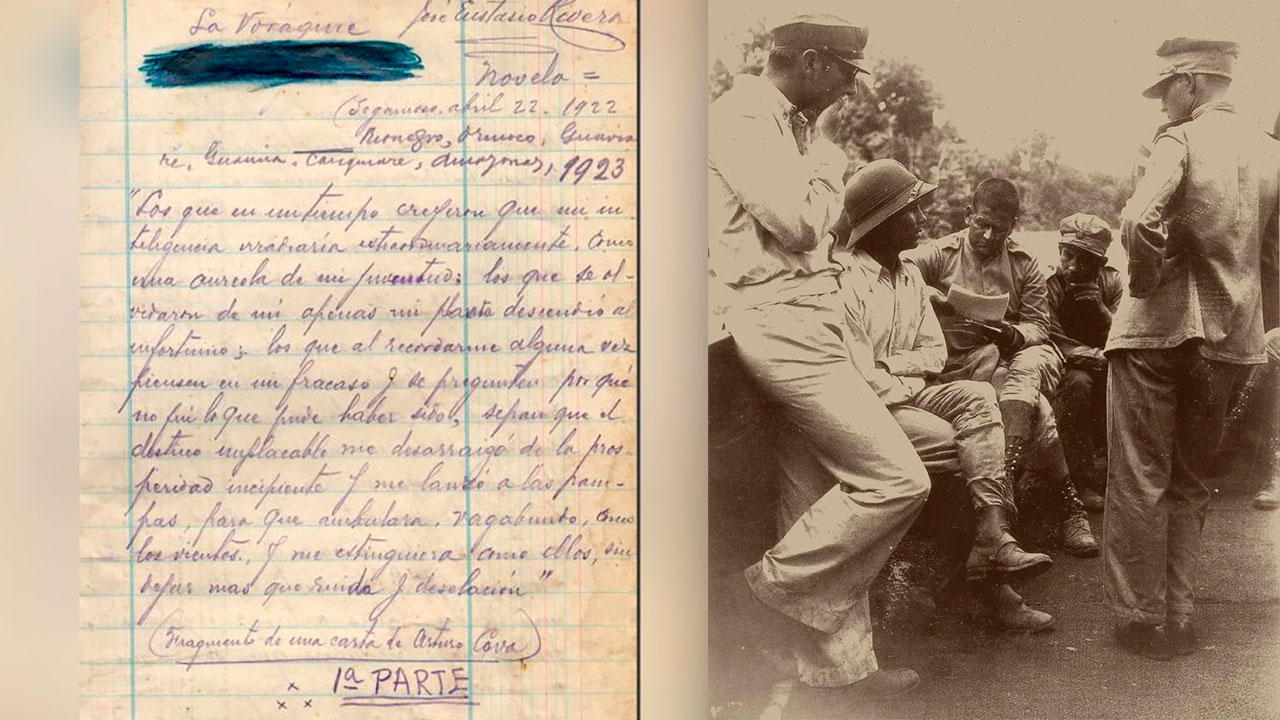 La Vorágine José Eustasio Rivera
Novela =
(Sogamoso, abril 22. 1922
Rionegro, Orinoco, Guavia-
re, Guainía, Casiquiare, Amazonas, 1923
"Los que en un tiempo creyeron que mi in-
teligencia irradiaría extraordinariamente, como
una aureola de mi juventud; los que se ol-
vidaron de mí apenas mi planta descendió al
infortunio; los que al recordarme alguna vez
piensen en mi fracaso y se pregunten por qué
no fuí lo que pude haber sido, sepan que el
destino implacable me desarraigó de la pros-
peridad incipiente y me lanzó a las pam-
pas, para que ambulara, vagabundo, como
los vientos, y me extinguiera como ellos, sin
dejar mas que ruido y desolación"
(Fragmento de una carta de Arturo Cova)
1ª PARTE